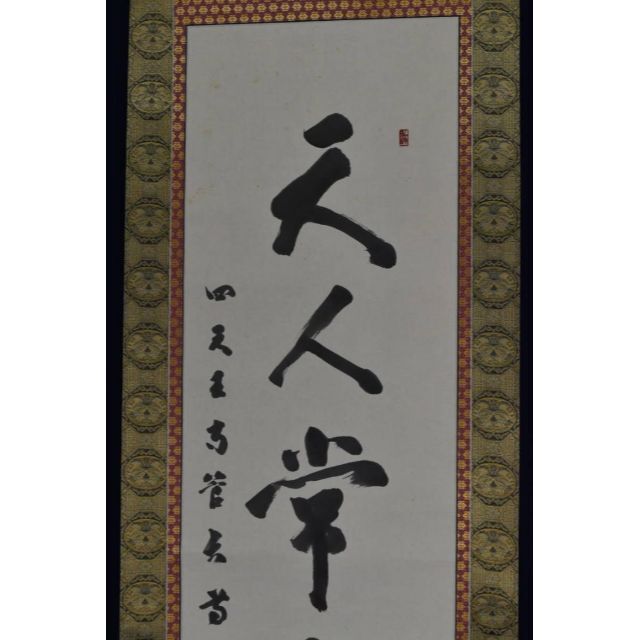 天人常
四天王寺管長